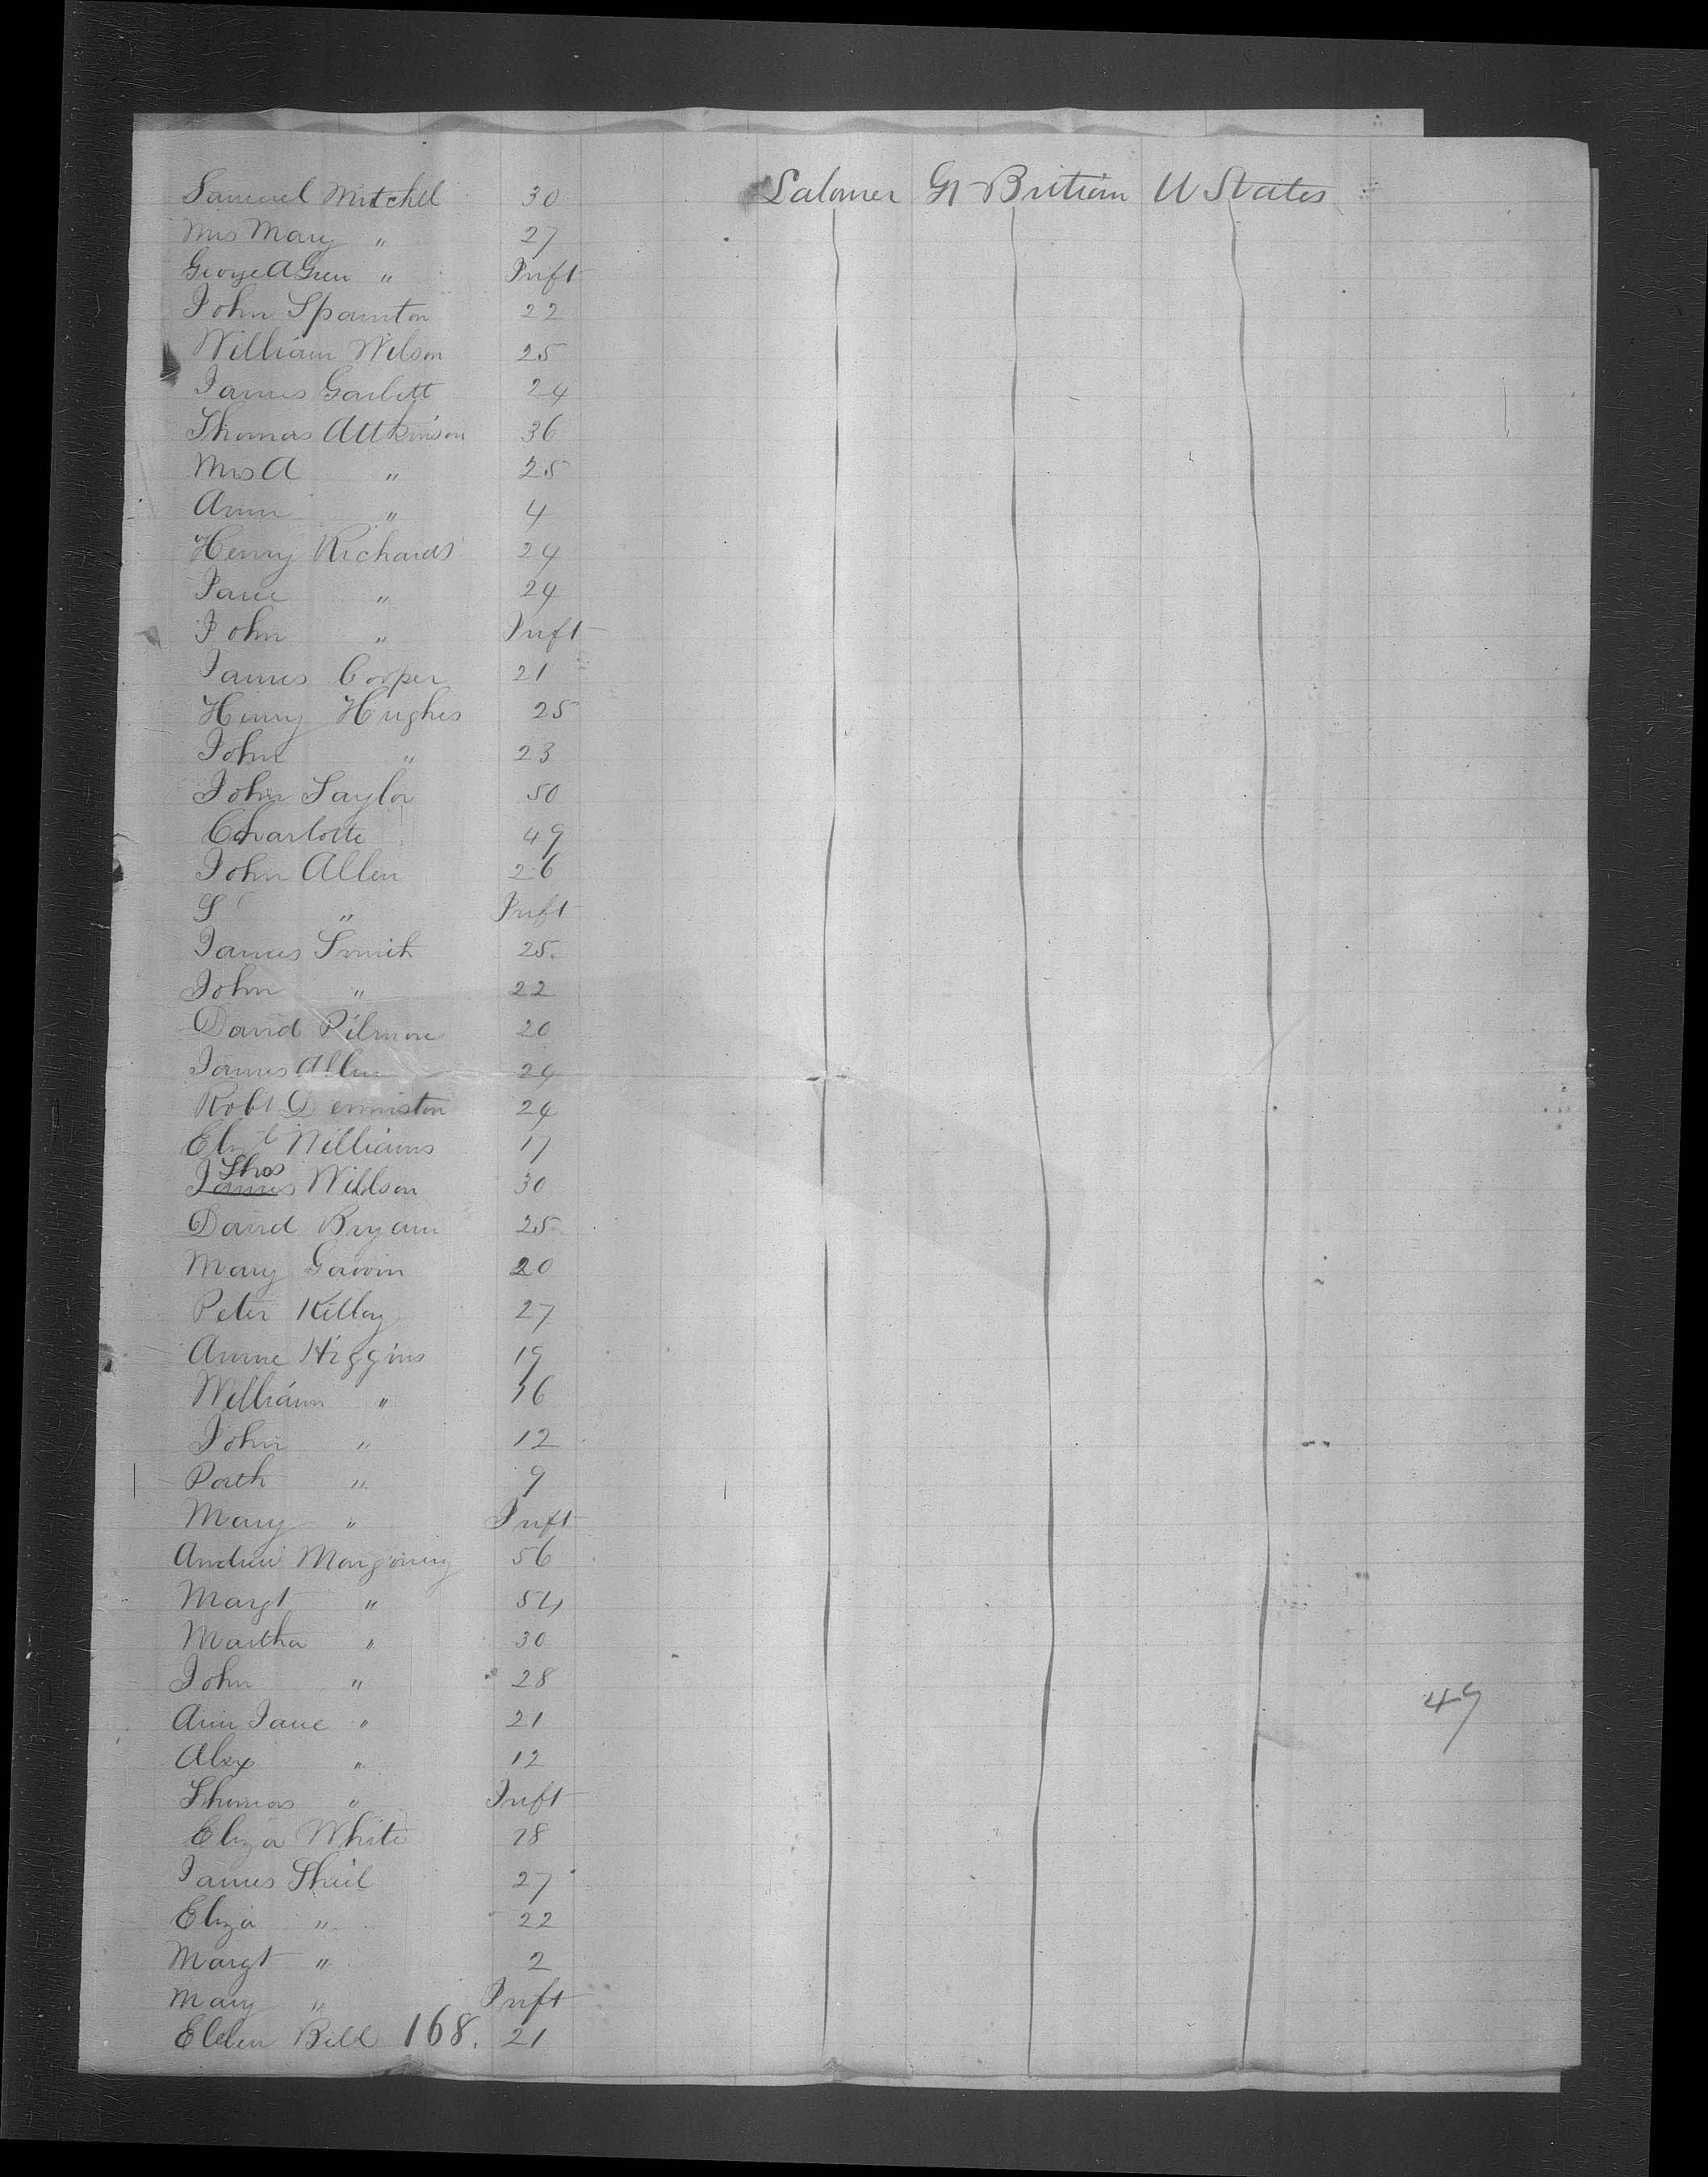 Samuel Mitchel 30 Labourer Gt Britian U States
Mrs Mary " 27
George A Green " Inft
John Spaunton 22
William Wilson 25
James Garbett 24
Thomas Attkinson 36
Mrs A " 25
Ann " 4
Henry Richards 24
Jane " 24
John " Inft
James Cooper 21
Henry Hughes 25
John " 23
John Taylor 50
Charlotte 49
John Allen 26
S " Inft
James Smith 25
John " 22
David Pilmore 20
James Allen 24
Robt Denniston 24
Elizth Williams 17
Thos
James Willson 30
David Bryam 25
Mary Gavvin 20
Peter Killoy 27
Anne Higgins 19
William " 16
John " 12
Patk " 9
Mary " Inft
Andrew Mongomry 56
Margt " 54
Martha " 30
John " 28
Ann Jane " 21 49
Alex " 12
Thomas " Inft
Eliza White 18
James Shiel 27
Eliza " 22
Margt " 2
Mary " Inft
Ellen Bell 168. 21